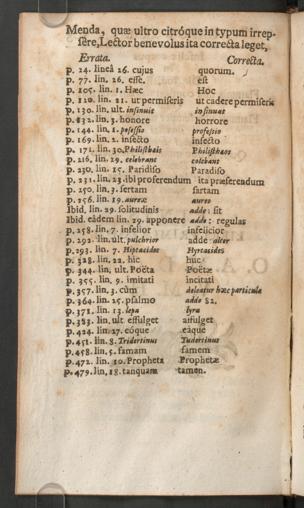 Menda, quæ ultro citróque in typum irrep-
sêre, Lector benevolus ita correcta leget,
Errata. Correcta.
p. 24. lineâ 26. cujus quorum.
p. 77. lin. 26. esse. est
p. 105. lin. 1. Hæc Hoc
p. 120. lin. 21. ut permiseris ut cadere permiseris
p. 130. lin. ult. insinuit insinuat
p. 132. lin. 3. honore horrore
p. 144. lin. 1. professio
p. 169. lin. 2. insecto infecto
p. 171. lin. 30. Philistbais Philisthæos
p. 216. lin. 29. celebrant colebant
p. 230. lin. 15. Paridiso Paradiso
p. 231. lin. 23. ibi proferendum ita præferendum
p. 250. lin. 7. sertam sartam
p. 256. lin. 19. aureæ aureo
Ibid. lin. 29. solitudinis adde: sit
Ibid. eâdem lin. 29. apponere adde: regulas
p. 258. lin. 7. infelior infelicior
p. 292. lin. ult. pulchrior adde alter
p. 293. lin. 7. Hiptacides Hyrtacides
p. 328. lin. 22. hic huc
p. 344. lin. ult. Poëta Poëtæ
p. 355. lin. 9. imitati incitati
p. 357. lin. 3. cùm deleatur hæc particula
p. 364. lin. 25. psalmo adde 82.
p. 371. lin. 13. lepa lyra
p. 383. lin. ult. effulget affulget
p. 424. lin. 27. eóque eáque
p. 451. lin. 8. Tridertinus Tudertinus
p. 458. lin. 5. famam famem
p. 472. lin. 10. Propheta Prophetæ
p. 479. lin. 18. tanquam tamen.